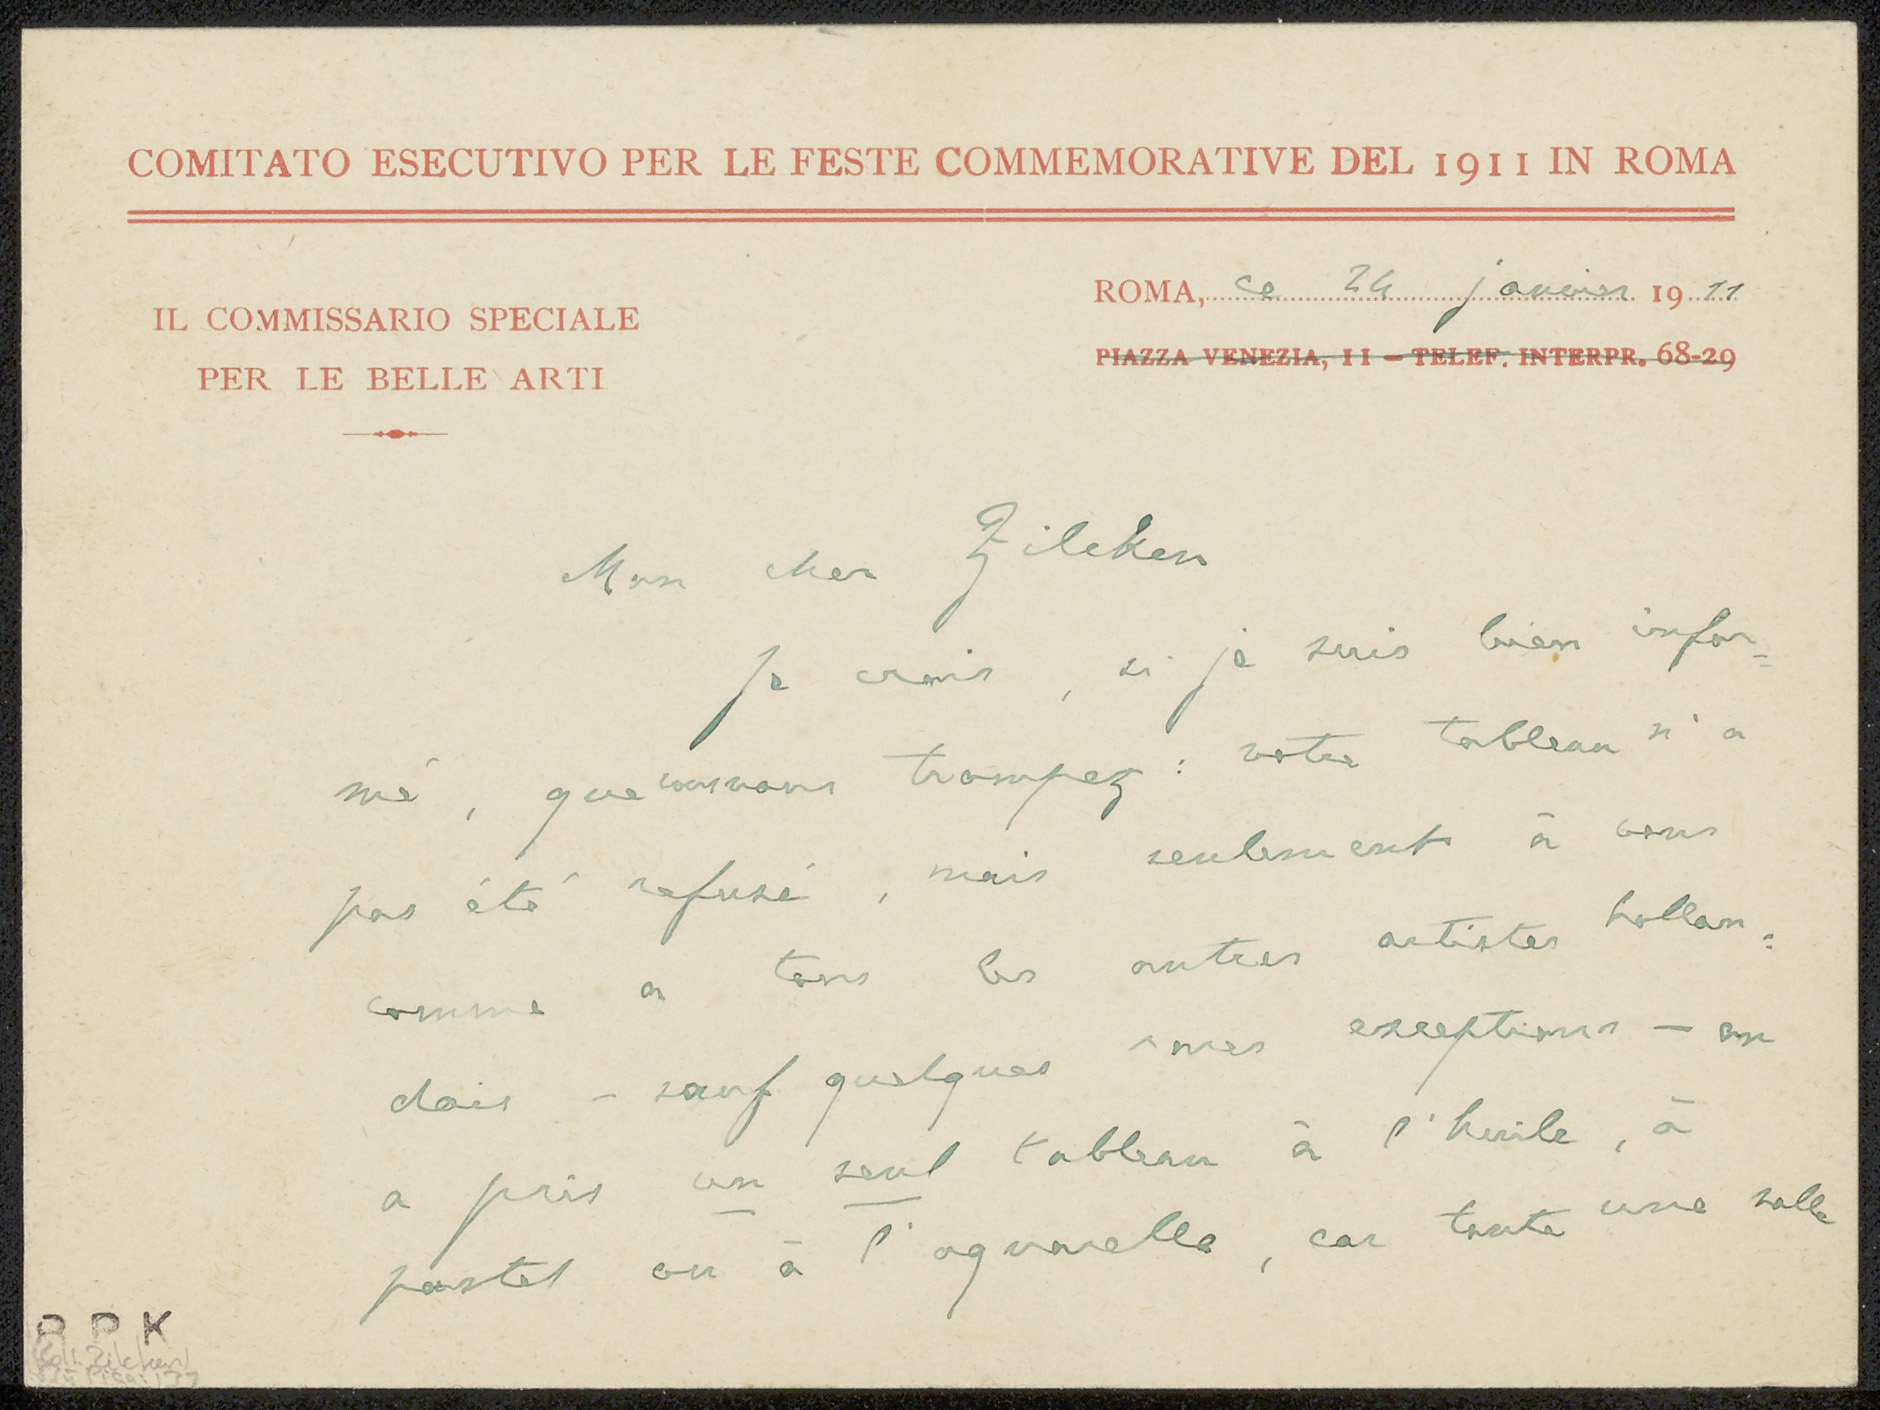 COMITATO ESECUTIVO PER LE FESTE COMMEMORATIVE DEL 1911 IN ROMA
IL COMMISSARIO SPECIALE
PER LE BELLE ARTI
ROMA, ce 24 janvier 1911
PIAZZA VENEZIA, 11 – TELEF. INTERPR. 68-29
Mon cher Zilcken
Je crois, si je suis bien infor=
mé, que vous vous trompez: votre tableau n'a
pas été refusé, mais seulement à vous
comme a tous les autres artistes hollan=
dais – sauf quelques rares exceptions – on
a pris un seul tableau à l'huile, à
pastel ou à l'aquarelle, car toute une salle
R P K
(Coll. Zilcken)